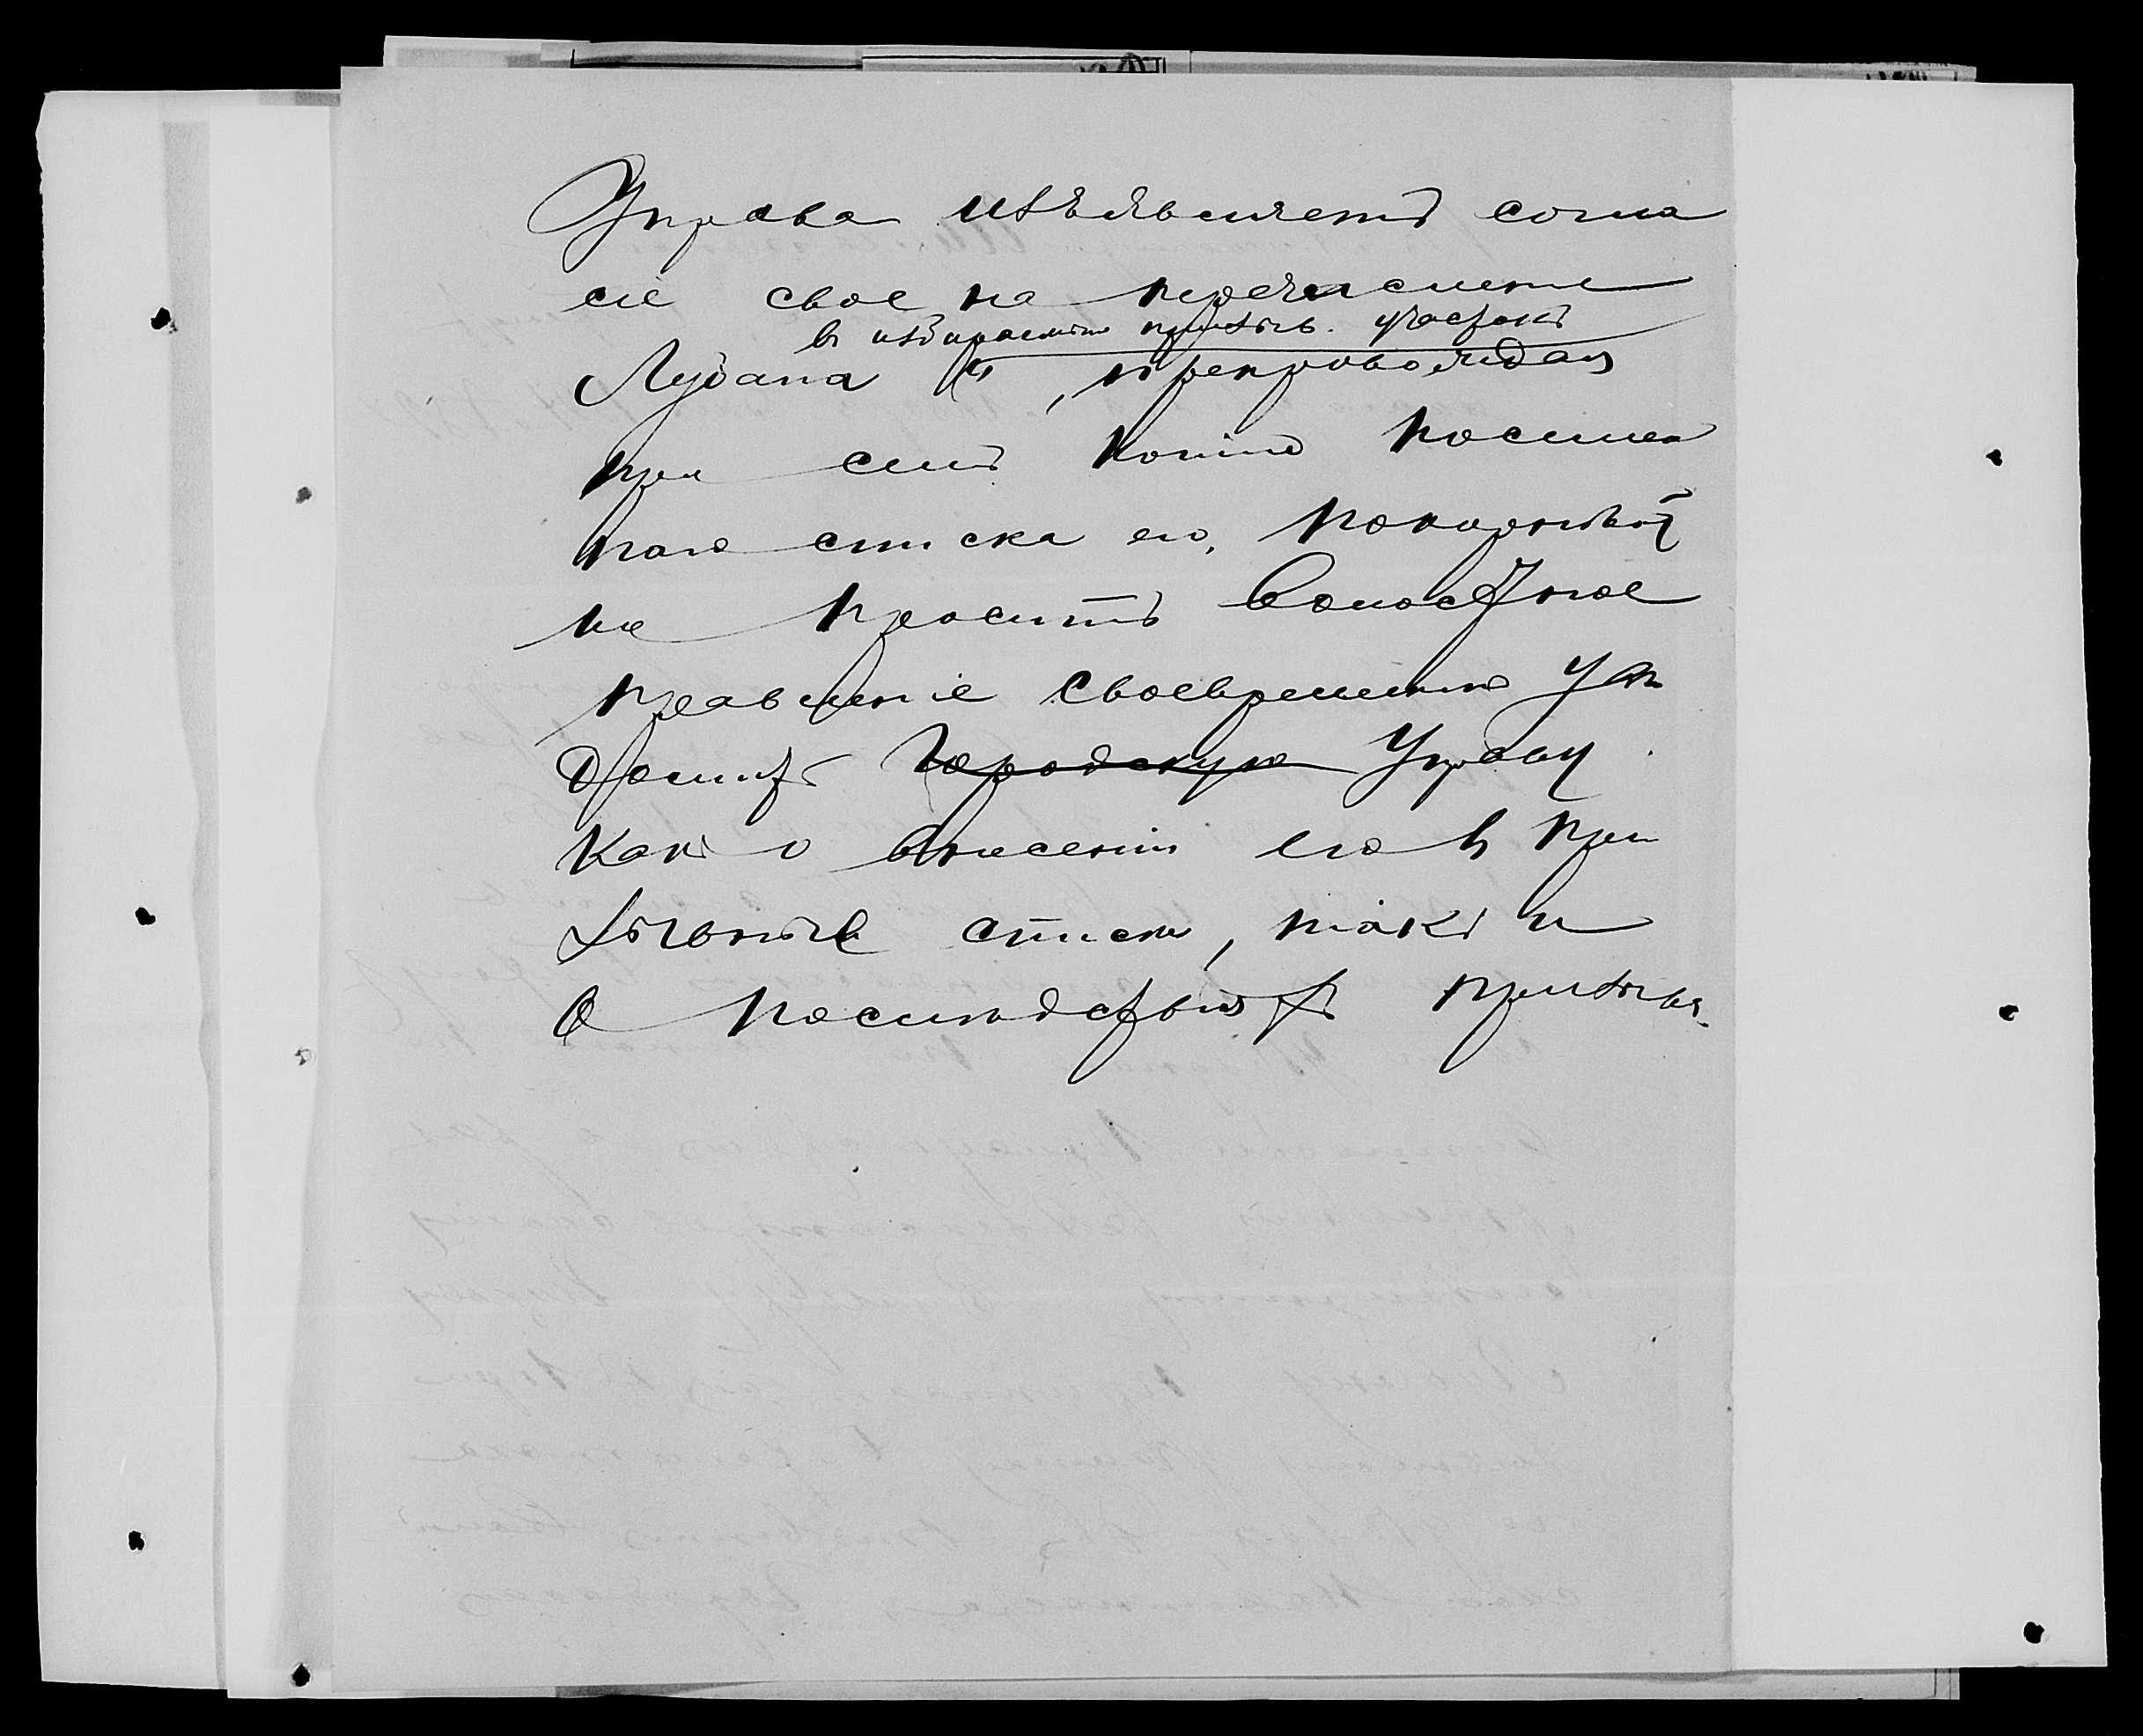 Управа изъявляетъ согла
сіе свое на перечисленіе
в избираемый призывъ. участокъ
Лубана , препровождая
при семъ копію посемей
наго списка его, покорнѣй
ше проситъ Волостное
правленіе своевременно уве
домить Городскую Управу
какъ о внесеніи его в при
зывные списки, такъ и
о послѣдствіяхъ призыва.